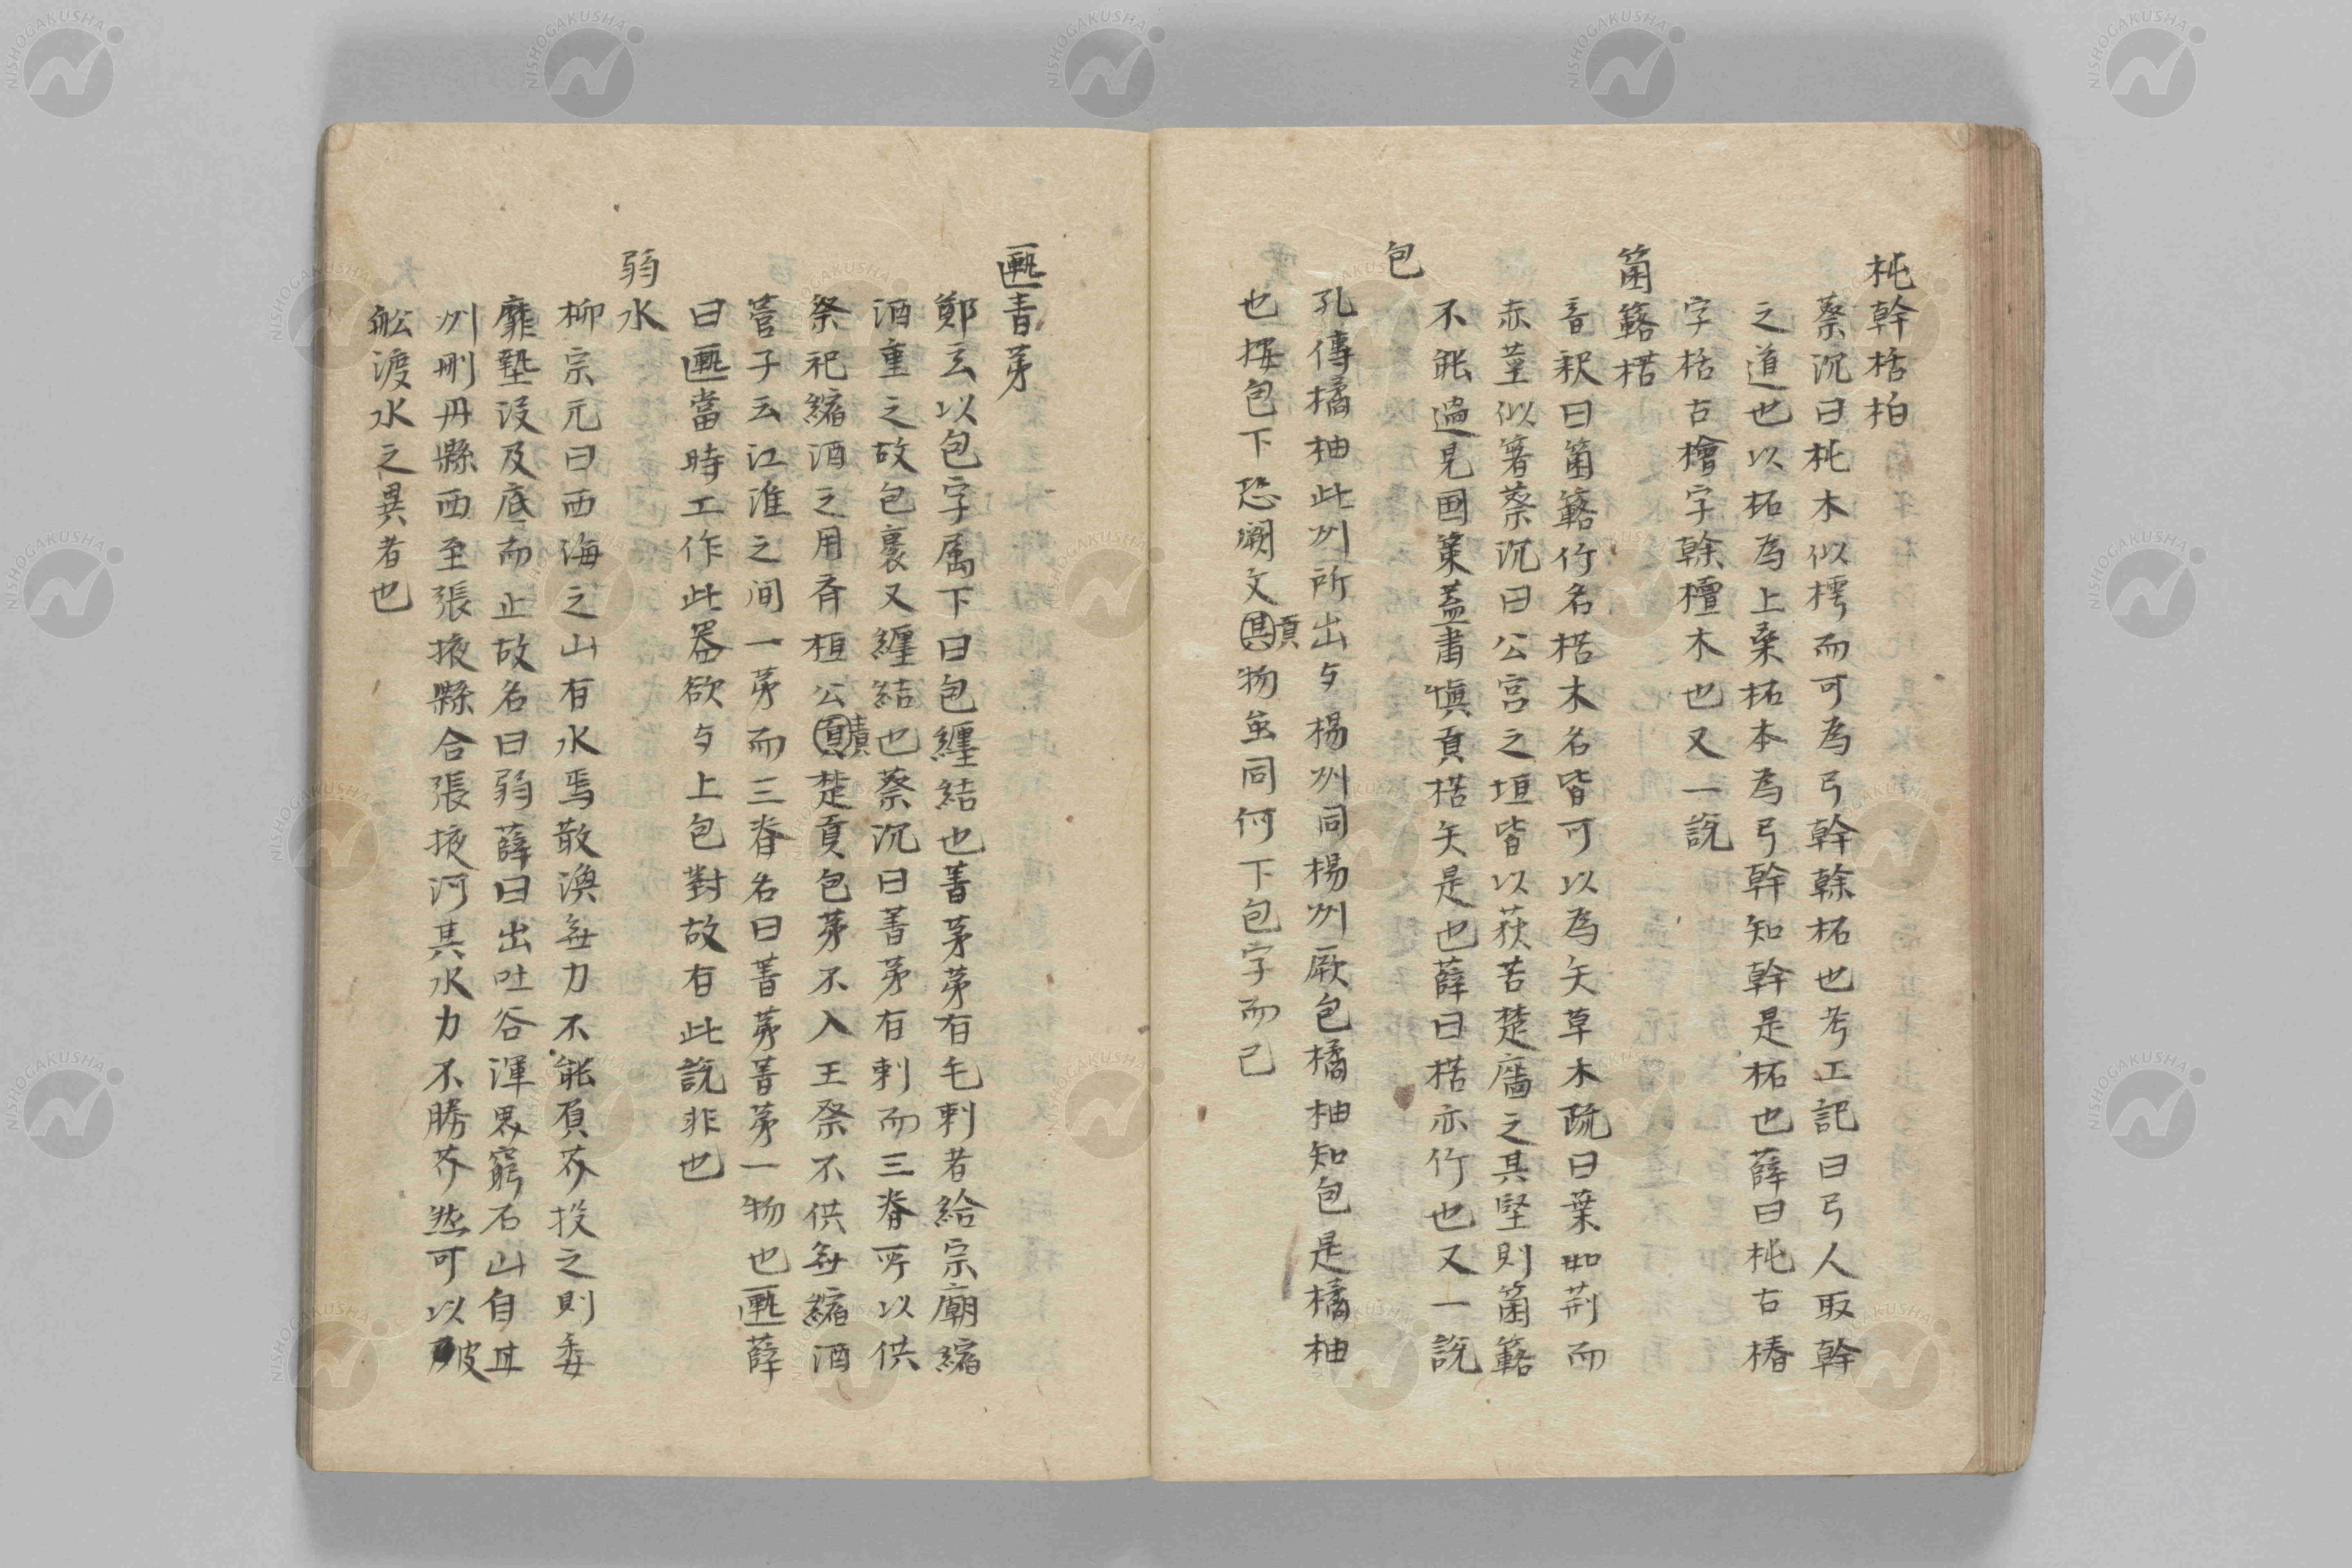 杶幹栝柏
蔡沉曰杶木似樗而可為弓幹榦柘也考工記曰弓人取幹
之道也以柘為上桒柘本為弓幹知幹是柘也薛曰杶古椿
字栝古檜字榦檀木也又一說
箘簵楛
音釈曰箘簵竹名楛木名皆可以為矢草木疏曰葉如荊而
赤莖似箸蔡沉曰公宮之垣皆以荻苦楚廧之其堅則箘簵
不能過見国策蓋肅愼貢楛矢是也薛曰楛亦竹也又一說
包
孔傳橘柚此州所出与楊州同楊州厥包橘柚知包是橘柚
也按包下恐闕文其貢物並同何下包字而已
匭菁茅
鄭玄以包字属下曰包纏結也菁茅茅有毛刺者給宗廟縮
酒重之故包裹又纏結也蔡沉曰菁茅有刺而三脊所以供
祭祀縮酒之用斉桓公責楚貢包茅不入王祭不供無縮酒
管子云江淮之间一茅而三脊名曰菁茅菁茅一物也匭薛
曰匭當時工作此器欲与上包對故有此說非也
弱水
柳宗元曰西海之山有水焉散渙無力不能負芥投之則委
靡墊没及底而止故名曰弱薛曰出吐谷渾界窮石山自甘
州刪丹縣西至張掖縣合張掖河其水力不勝芥然可以皮
舩渡水之異者也
NISHOGAKUSHA